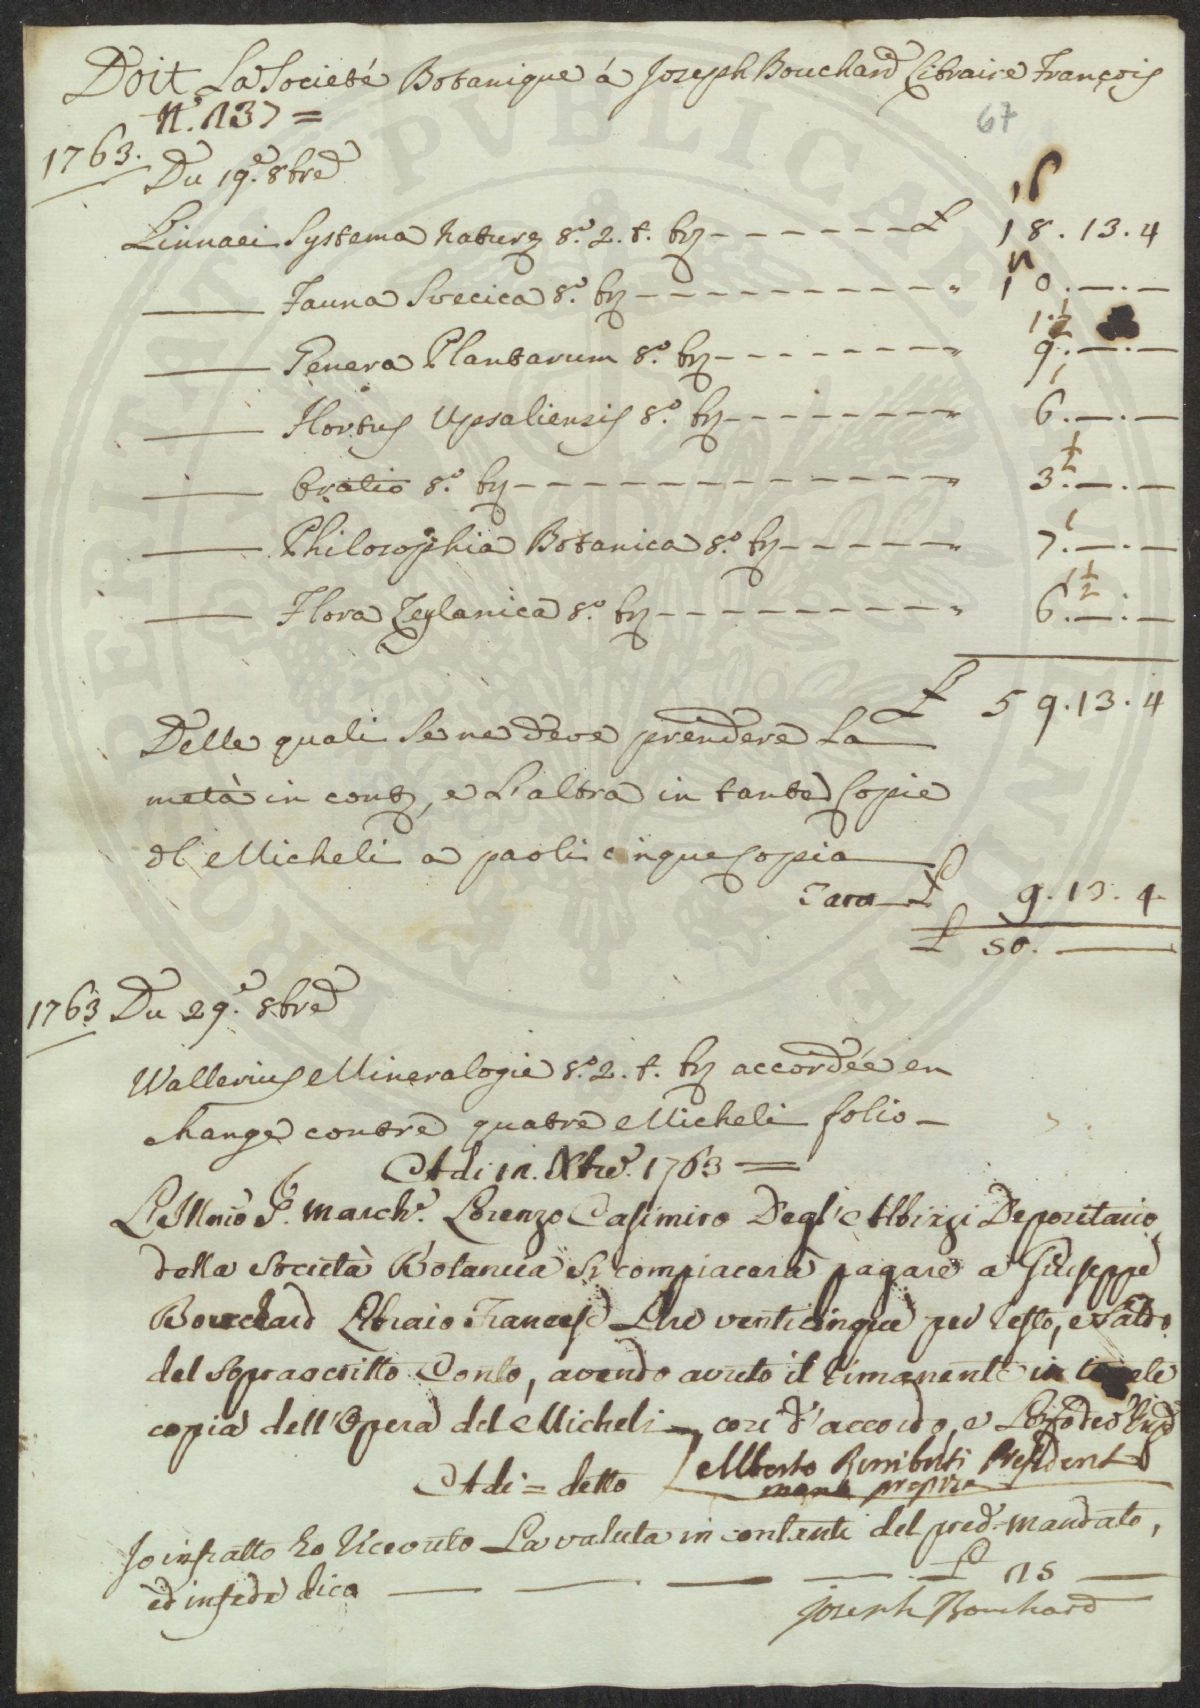 Doit La Societé Botanique á Joseph Bouchard Libraire François
N.º 137 =
67
1763. Du 19.e 8bre
Linnaei Systema Naturę 8.º 2. t. £ 18. 13. 4
Fauna Svecica 8.º " 10. — . —
Genera Plantarum 8.º " 9. — . —
Hortus Upsaliensis 8.º " 6. — . —
Oratio 8.º " 3. — . —
Philosophia Botanica 8.º " 7. — . —
Flora Zeylanica 8.º " 6. — . —
£ 59. 13. 4
Delle quali Se ne deve prendere La
metà in cont, e L'altra in tante Copie
del Micheli a paoli cinque Copia
Tara £ 9. 13. 4
£ 50. —
1763 Du 29.e 8bre
Wallerius Mineralogie 8.º 2. t. accordée en
change contre quatre Micheli folio —
Adi 11. Xbre. 1763 =
L'Illmo Sr. March.e Lorenzo Casimiro Degl'Albizzi Depositario
della Società Botanica Si compiacerà pagare a Giuseppe
Bouchard Libraio Francese Lire venticinque per resto, e Saldo
del Soprascritto Conto, avendo avuto il rimanente in
copia dell'Opera del Micheli cosi d'accordo, e
Alberto Rimbotti Presidente
Adi = detto mano propria
Io infratto ho Ricevuto La valuta in contanti del pred. mandato,
ed in fede dico — £ 25 —
Joseph Bouchard